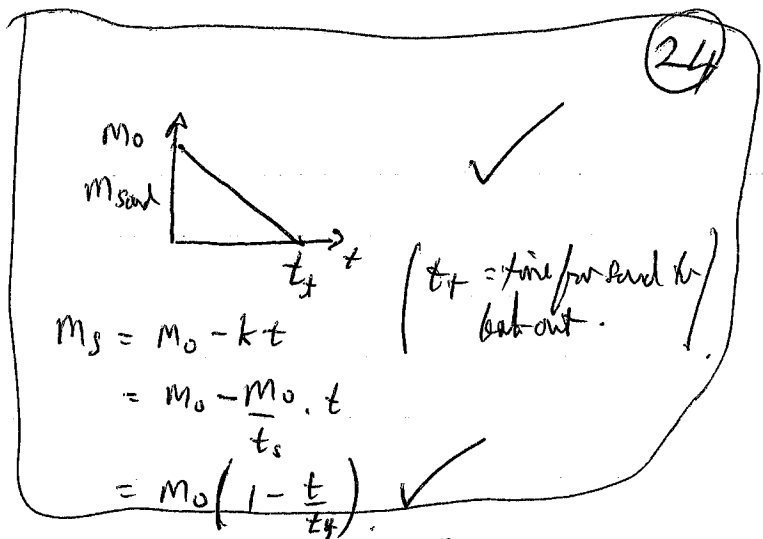 24
m₀
m sand
t_f t
(t_f = time for sand to
out.)
m_s = m₀ - kt
= m₀ - m₀/t_s . t
= m₀(1 - t/t_f).